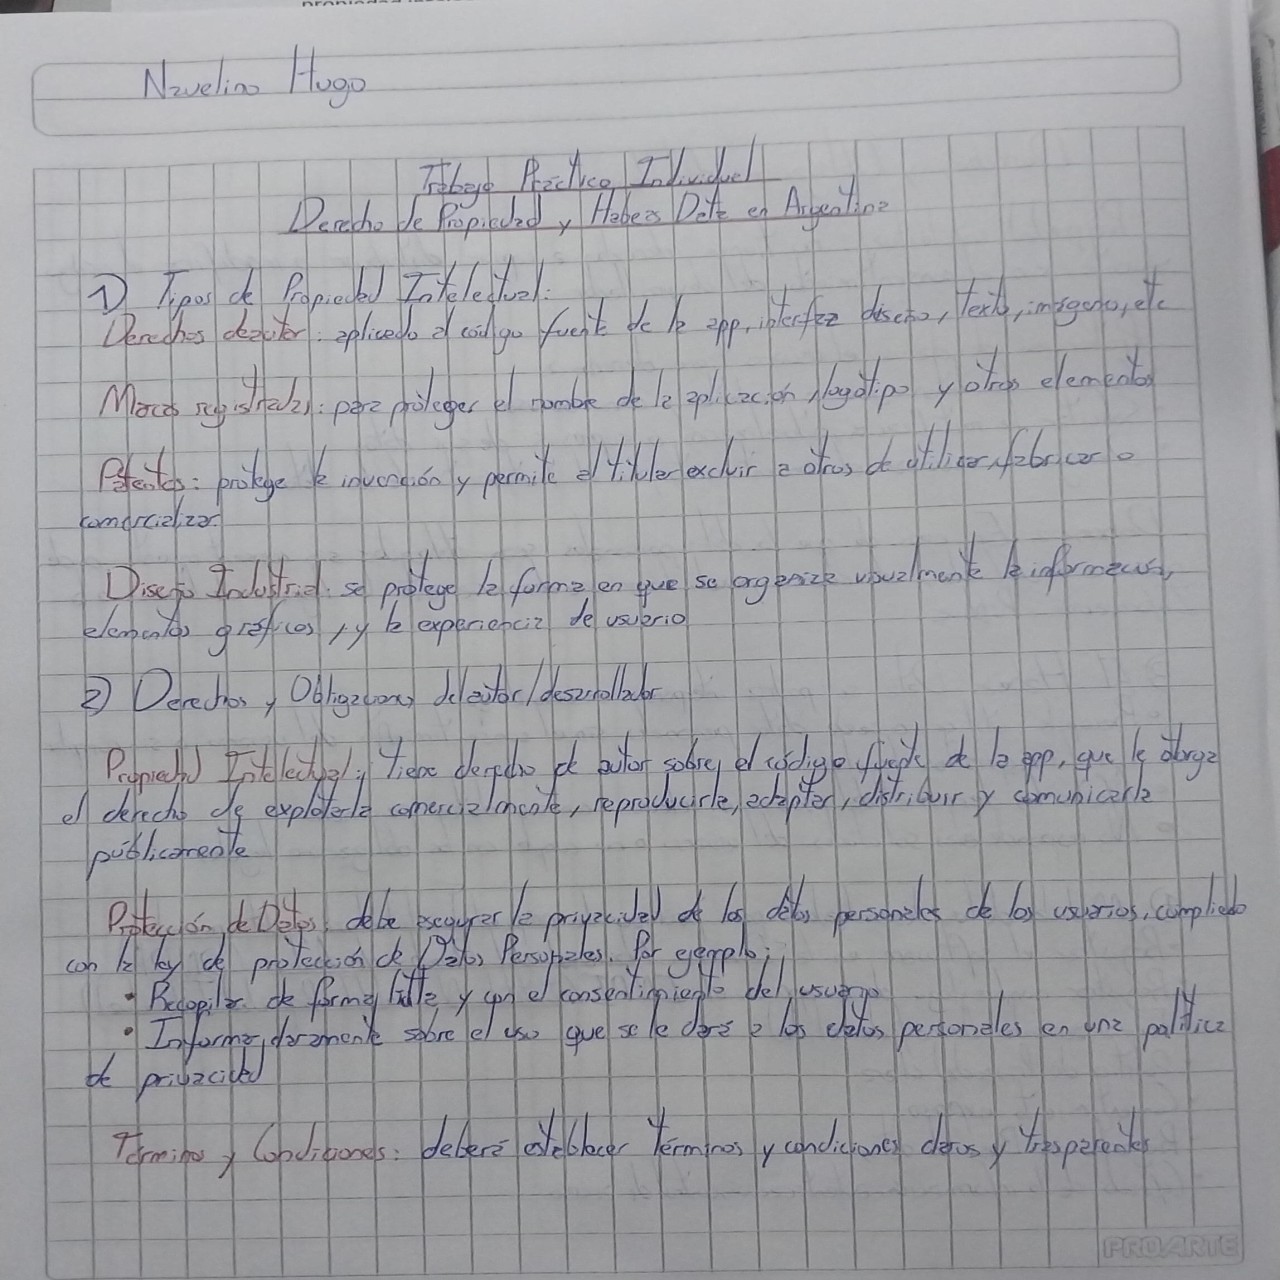 Navelino Hugo
Trabajo Práctico Individual
Derecho de Propiedad y Habeas Data en Argentina
1) Tipos de Propiedad Intelectual:
Derechos de autor: aplicado al código fuente de la app, interfaz diseño, texto, imagenes, etc
Marcas registradas: para proteger el nombre de la aplicación, logotipo y otros elementos
Patentes: protege la invención y permite al titular excluir a otros de utilizar, fabricar o
comercializar.
Diseño Industrial: se protege la forma en que se organiza visualmente la información,
elementos gráficos, y la experiencia de usuario
2) Derechos y Obligaciones del autor/desarrollador
Propiedad Intelectual: tiene derecho de autor sobre el código fuente de la app, que le otorga
el derecho de explotarla comercialmente, reproducirla, adaptar, distribuir y comunicarla
públicamente
Protección de Datos: debe asegurar la privacidad de los datos personales de los usuarios, cumpliendo
con la ley de protección de Datos Personales. Por ejemplo;
• Recopilar de forma lícita y con el consentimiento del usuario
• Informar claramente sobre el uso que se le dara a los datos personales en una política
de privacidad
Términos y Condiciones: deberá establecer términos y condiciones claros y trasparentes
PROARTE